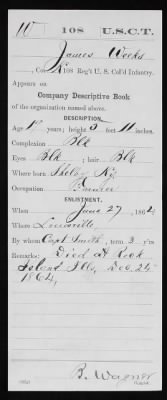 W 108 U.S.C.T.
James Weeks
, Co. K, 108 Reg't U. S. Col'd Infantry.
Appears on
Company Descriptive Book
of the organization named above.
DESCRIPTION.
Age 19 years; height 5 feet 11 inches.
Complexion Blk
Eyes Blk ; hair Blk
Where born Shelby Ky
Occupation Farmer
ENLISTMENT.
When June 27, 1864
Where Louisville
By whom Capt Smith, term 3 y'rs.
Remarks: Died at Rock
Island Ills, Dec. 24
1864,
B. Wagner